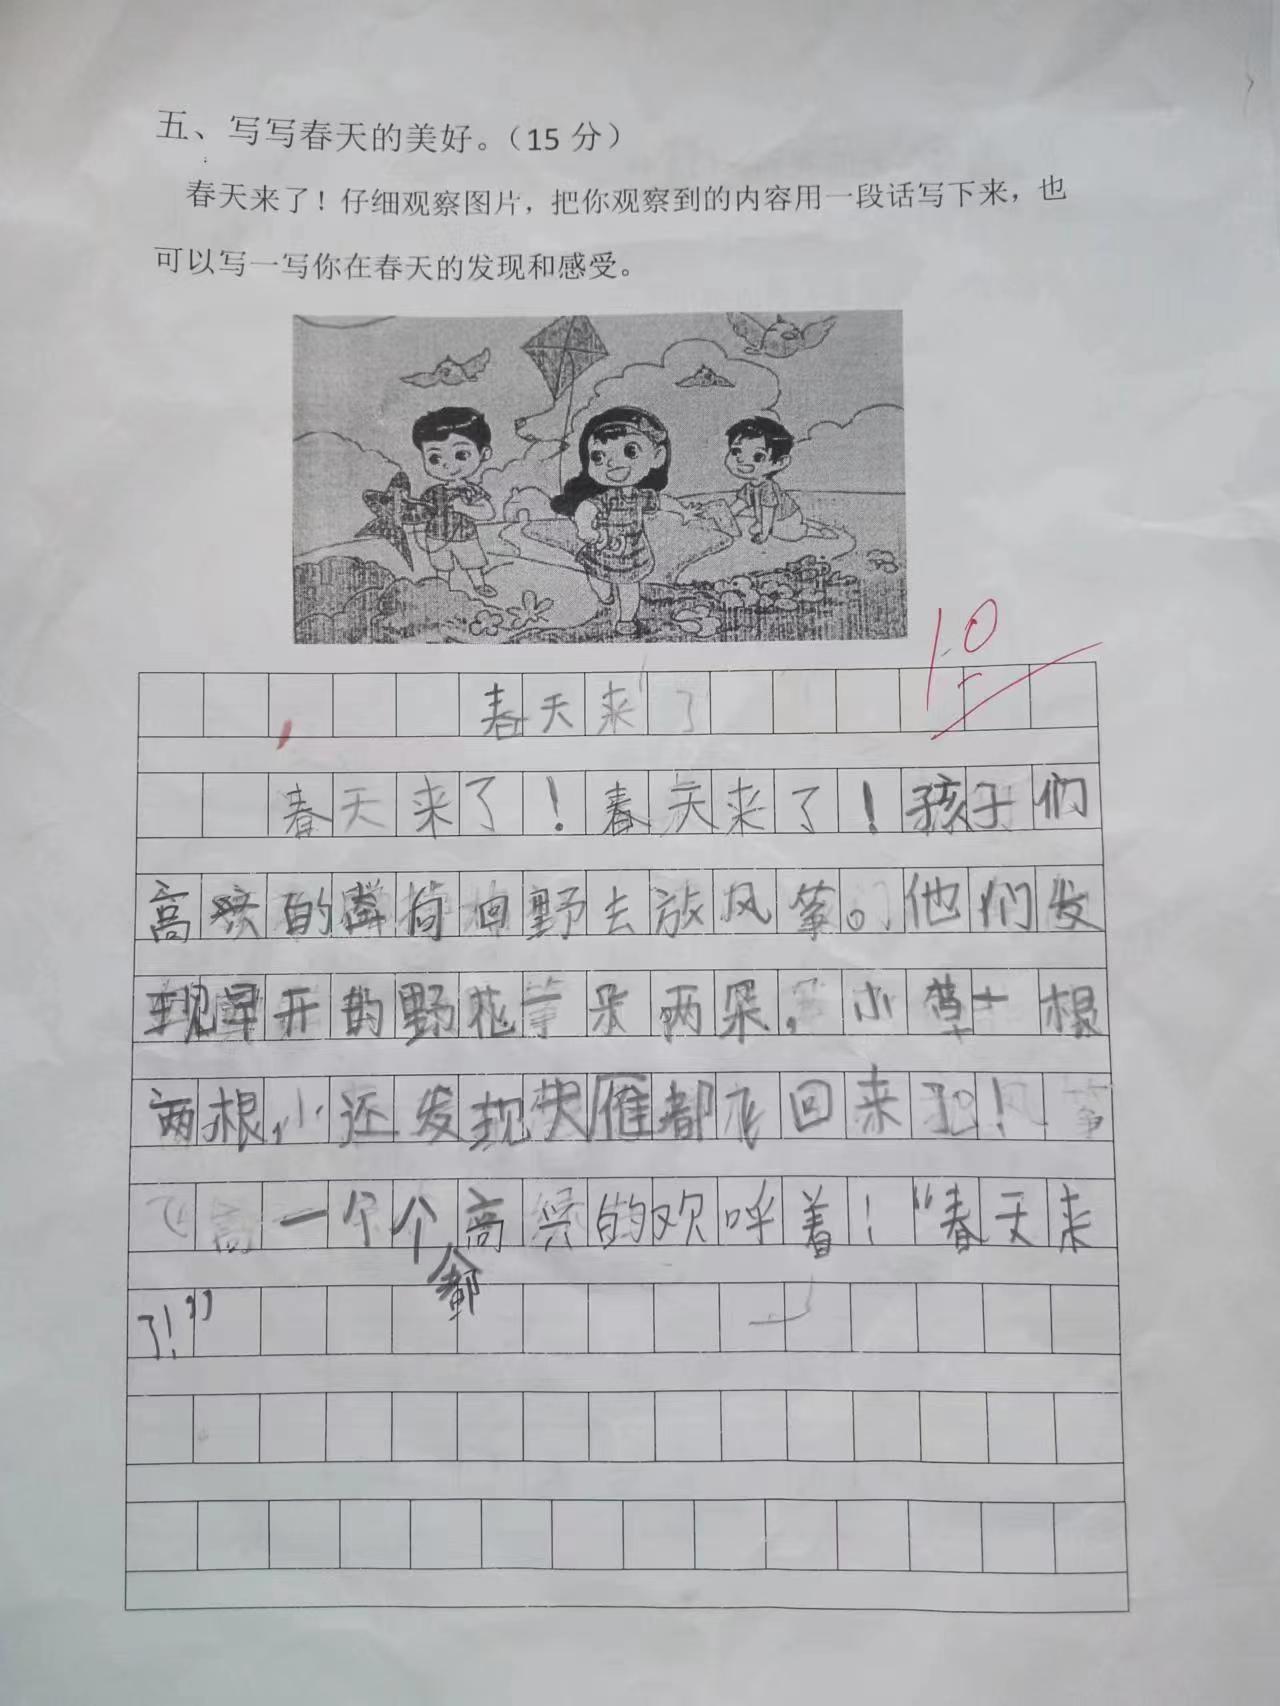 五、写写春天的美好。（15 分）
春天来了！仔细观察图片，把你观察到的内容用一段话写下来，也
可以写一写你在春天的发现和感受。
10
春天来了
春天来了！春天来了！孩子们
高的向田野去放风筝。他们发
现早开的野花一朵两朵，小草一根
两根，还发现大雁都飞回来了！
一个个都高兴的欢呼着！“春天来
了！”